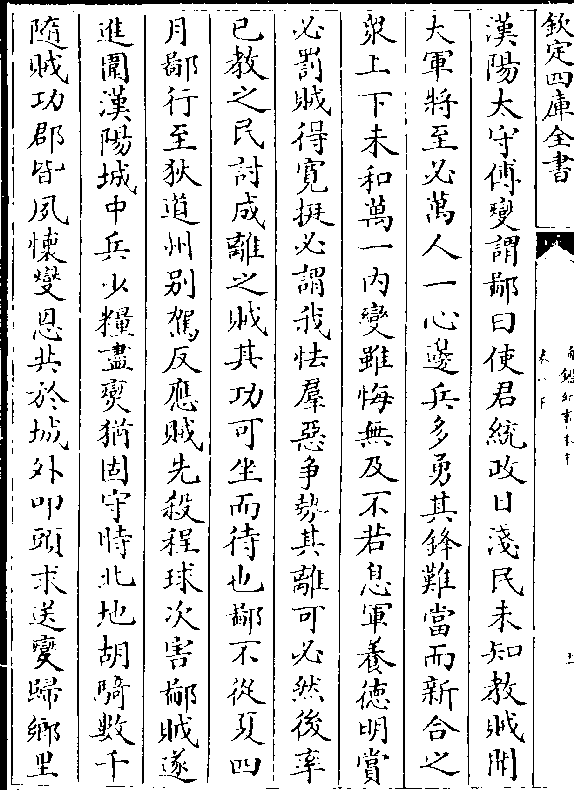 欽定四庫全書
漢陽太守傅燮謂鄙曰使君統政日淺民未知教賊聞
大軍將至必萬人一心邊兵多勇其鋒難當而新合之
衆上下未和萬一内變雖悔無及不若息軍養德明賞
必罰賊得寛挺必謂我怯羣惡争勢其離可必然後率
已教之民討成離之賊其功可坐而待也鄙不從夏四
月鄙行至狄道州别駕反應賊先殺程球次害鄙賊遂
進圍漢陽城中兵少糧盡燮猶固守時北地胡騎數千
隨賊功郡皆夙懷燮恩共於城外叩頭求送燮歸鄉里